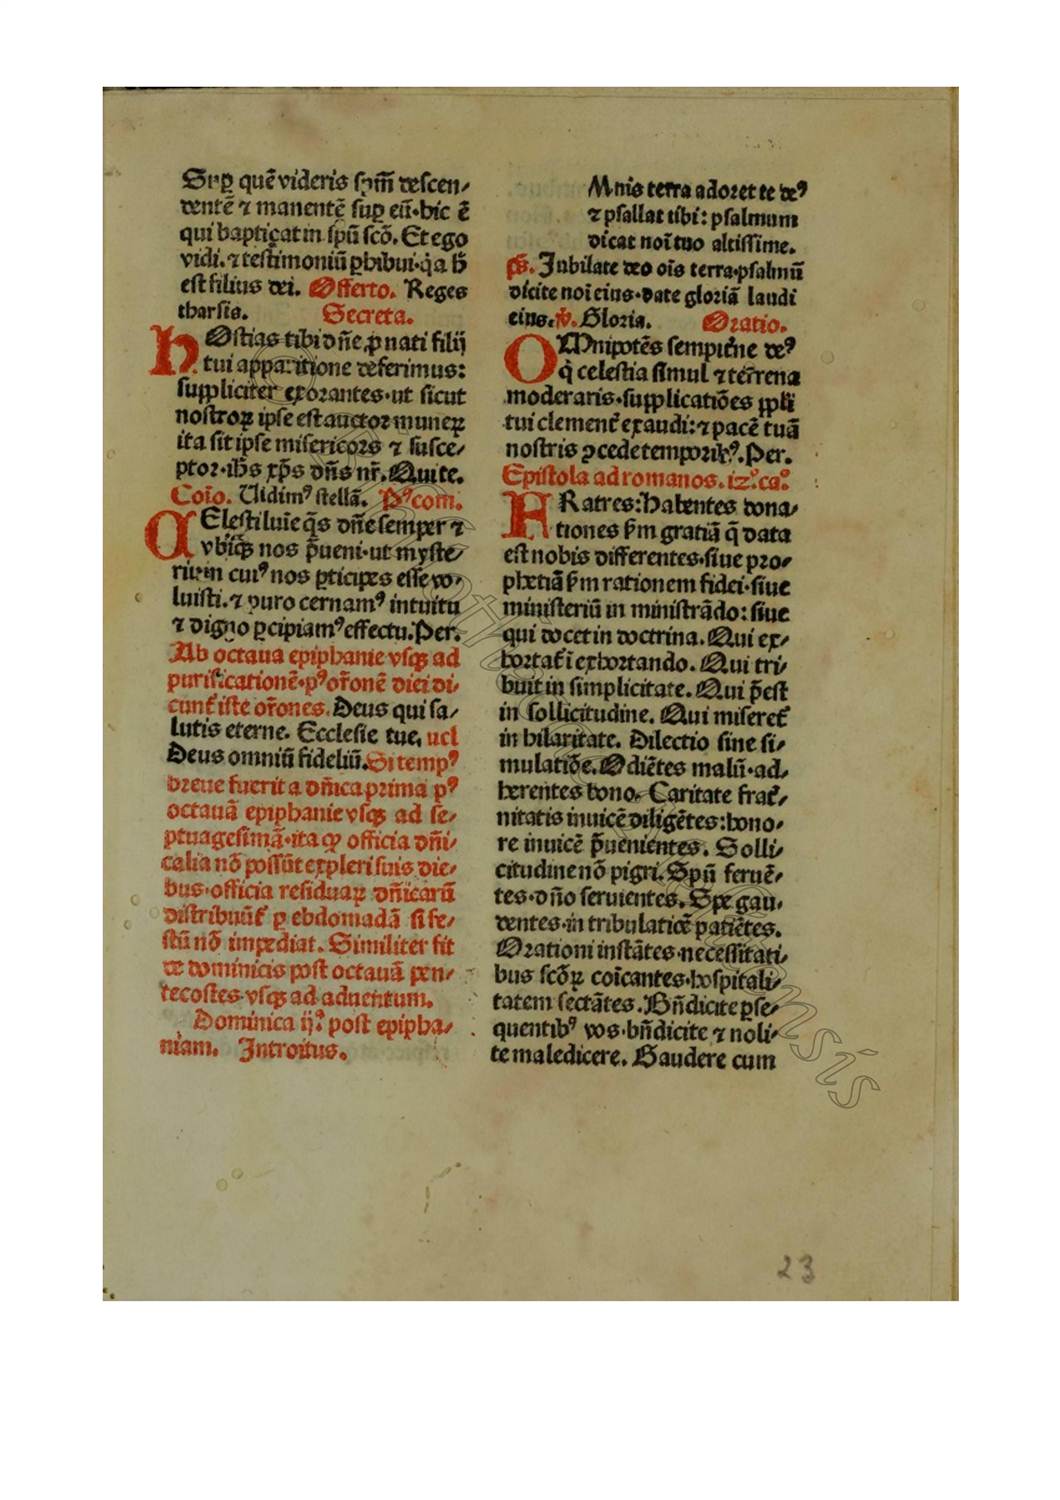 Sup̲ quē videris sp̄m descen⸗
dentē ⁊ manentē sup̲ eū·hic ē
qui baptiçat in sp̄ū scō. Et ego
vidi.⁊ testimoniū p̲hibui·q̄a h̄
est filius dei. Offerto. Reges
tharsis. Secreta.
HOstias tibi dn̄e ꝓ nati filij
tui apparitione deferimus:
suppliciter exorantes·ut sicut
nostroꝝ ipse est auctor muneꝝ
ita sit ipse misericors ⁊ susce⸗
ptor·ih̄s xp̄s dn̄s nr̄. Qui te.
Coīo. Uidimꝰ stellā. Pꝰcom.
CElesti luīe q̄s dn̄e semper ⁊
vbiqꝫ nos p̄ueni·ut myste⸗
rium cuiꝰ nos p̲ticipes esse vo⸗
luisti.⁊ puro cernamꝰ intuitu
⁊ digno p̲cipiamꝰ effectu. Per.
Ab octaua epiphanie vsqꝫ ad
purificationē·pꝰ or̄onē diei di⸗
cunt̄ iste or̄ones. Deus qui sa⸗
lutis eterne. Ecclesie tue, uel
Deus omniū fideliū. Si tempꝰ
breue fuerit a dn̄ica prima pꝰ
octauā epiphanie vsqꝫ ad se⸗
ptuagesimā·ita ꝙ officia dn̄i⸗
calia nō possūt expleri suis die⸗
bus·officia residuaꝝ dn̄icarū
distribuūt̄ p̲ ebdomadā si fe⸗
stū nō impediat. Similiter fit
de dominicis post octauā pen⸗
tecostes·vsqꝫ ad aduentum.
Dominica ij.ª post epipha⸗
niam. Introitus.
Mnis terra adoret te deꝰ
⁊ psallat tibi: psalmum
dicat noī tuo altissime.
ps̄. Iubilate deo oīs terra·psalmū
dicite noī eius·date gloriā laudi
eius. v̄. Gloria. Oratio.
OMnipotēs sempit̄ne deꝰ
q̄ celestia simul ⁊ terrena
moderaris·supplicatiōes pp̄li
tui clement̄ exaudi: ⁊ pacē tuā
nostris ꝯcede temporibꝰ. Per.
Epistola ad romanos. iz.ºcaº.
FRatres: Habentes dona⸗
tiones s̄m gratiā q̄ data
est nobis differentes·siue pro⸗
phetiā s̄m rationem fidei·siue
ministeriū in ministrādo: siue
qui docet in doctrina. Qui ex⸗
hortat̄ ī exhortando. Qui tri⸗
buit in simplicitate. Qui p̄est
in sollicitudine. Qui miseret̄
in hilaritate. Dilectio sine si⸗
mulatiōe. Odiētes malū·ad⸗
herentes bono. Caritate frat̄⸗
nitatis inuicē diligētes: hono⸗
re inuicē p̄uenientes. Solli⸗
citudine nō pigri. Sp̄ū feruē⸗
tes·dn̄o seruientes. Spe gau⸗
dentes·in tribulatiōe patiētes.
Orationi instātes·necessitati⸗
bus scōꝝ coīcantes·hospitali⸗
tatem sectātes. Bn̄dicite p̲se⸗
quentibꝰ vos·bn̄dicite ⁊ noli⸗
te maledicere. Gaudere cum
23